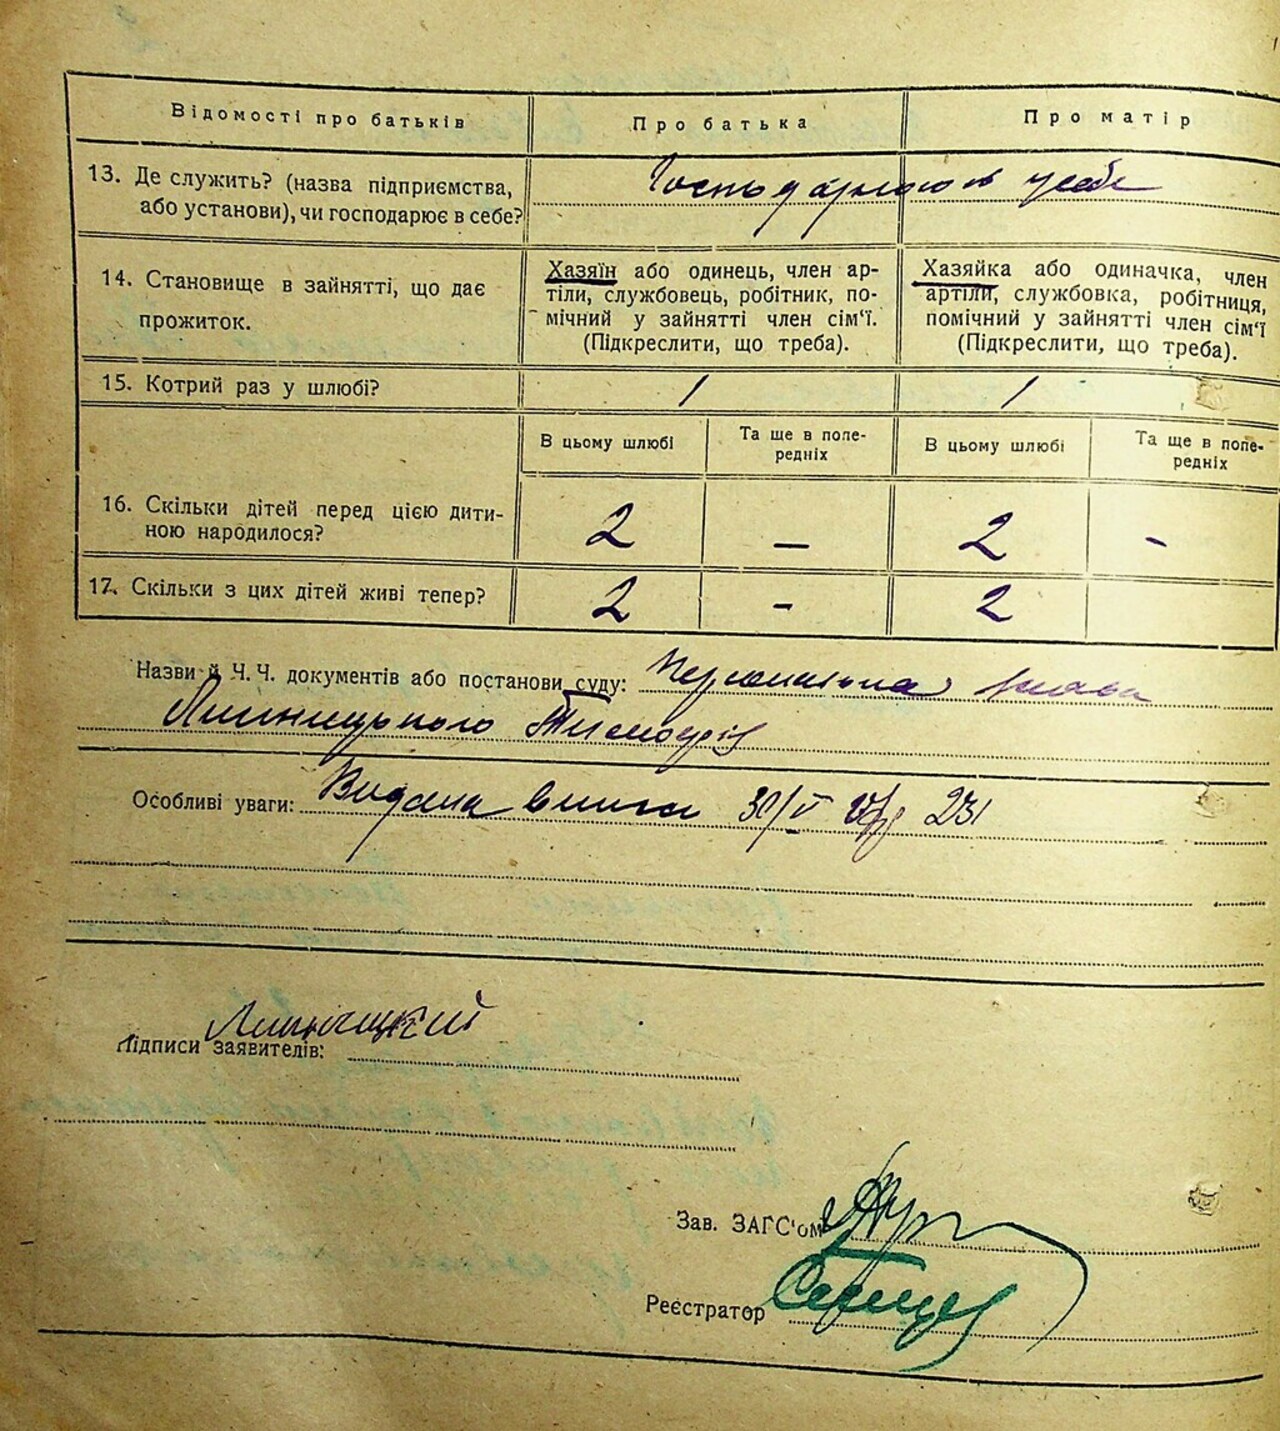 Відомості про батьків
Про батька
Про матір
13. Де служить? (назва підприємства,
або установи), чи господарює в себе?
Господарюють у себе
14. Становище в зайнятті, що дає
прожиток.
Хазяїн або одинець, член ар-
тіли, службовець, робітник, по-
мічний у зайнятті член сім'ї.
(Підкреслити, що треба).
Хазяйка або одиначка, член
артіли, службовка, робітниця,
помічний у зайнятті член сім'ї
(Підкреслити, що треба).
15. Котрий раз у шлюбі?
1
1
В цьому шлюбі
Та ще в попе-
редніх
В цьому шлюбі
Та ще в попе-
редніх
16. Скільки дітей перед цією дити-
ною народилося?
2
—
2
-
17. Скільки з цих дітей живі тепер?
2
-
2
Назви й Ч. Ч. документів або постанови суду: Персональна заява
Линницького Тимофія
Особливі уваги: Видана 30/V 231
Підписи заявителів:
Линницкий
Зав. ЗАГС'ом
Реєстратор